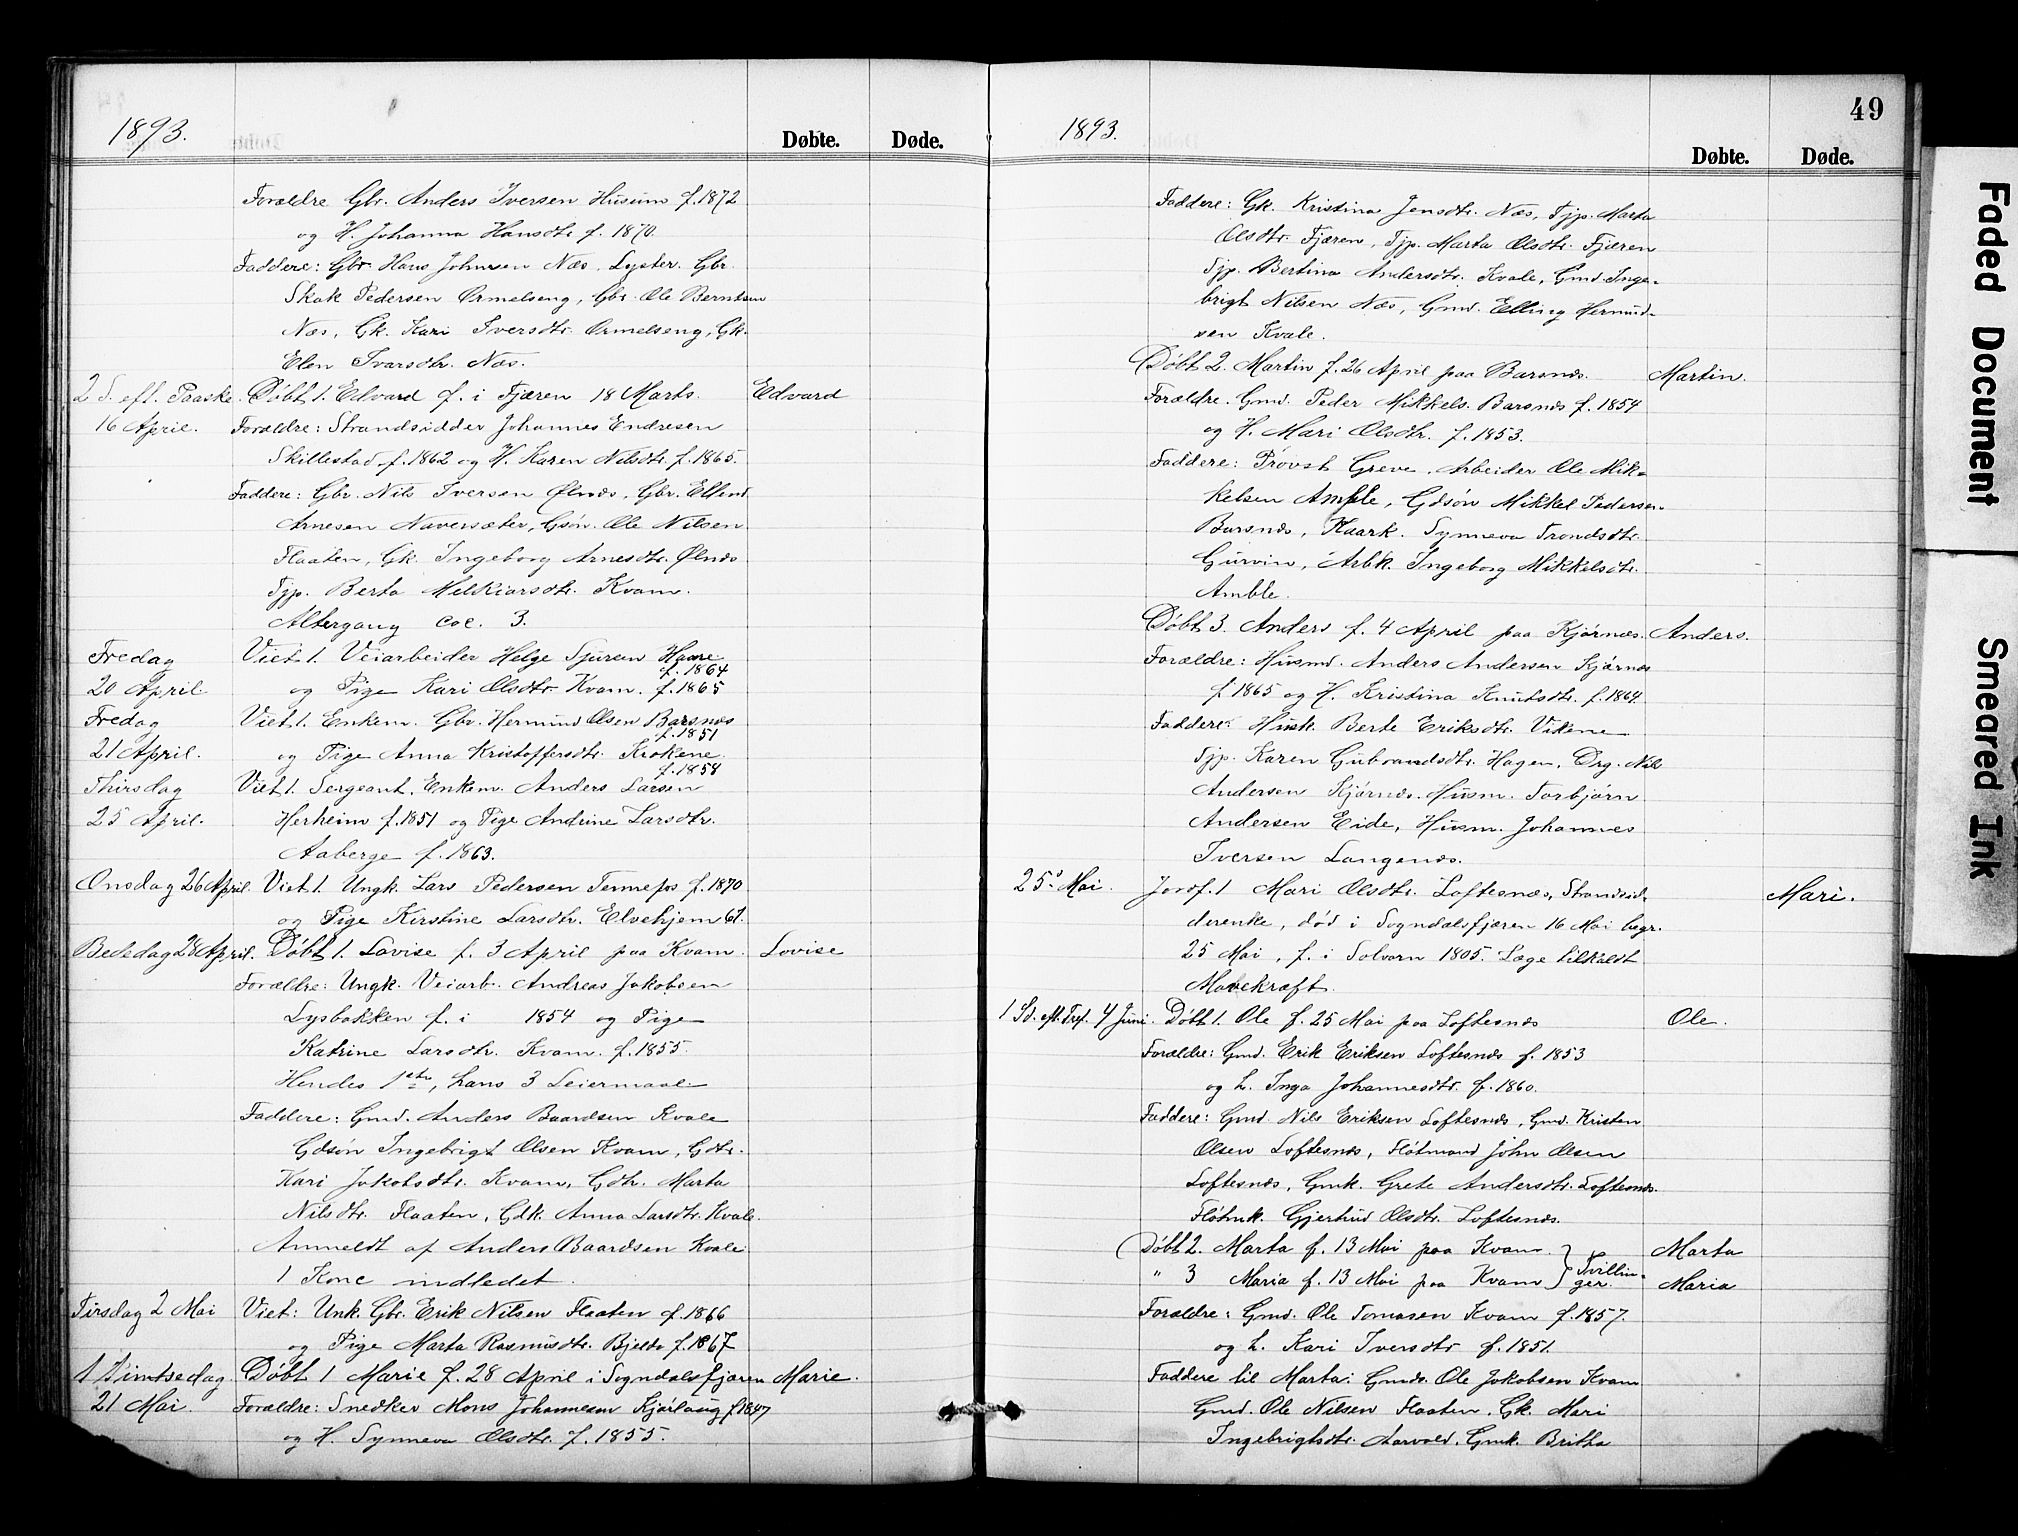 1893.
Døbte. Døde.
Forældre Gbr. Anders Iversen Husum f. 1872
og H. Johanna Hansdtr. f. 1870.
Faddere: Gbr. Hans Johnsen Næs, Lyster. Gbr.
Skak Pedersen Ormelseng, Gbr. Ole Berntsen
Næs, Gk. Kari Iversdtr. Ormelseng, Gk.
Elen Ivarsdtr. Næs.
2 S. eft. Paaske. Døbt 1. Edvard f. i Fjæren 18 Marts. Edvard
16 April. Forældre: Strandsidder Johannes Endresen
Skillestad f. 1862 og H. Karen Nilsdtr. f. 1865.
Faddere: Gbr. Nils Iversen Ølnæs, Gbr. Ellend
Arnesen Naversæter, Gsøn. Ole Nilsen
Flaaten, Gk. Ingeborg Arnesdtr. Ølnæs
Tjp. Berta Melkiorsdtr. Kvam.
Altergang coe. 3.
Fredag Viet 1. Veiarbeider Helge Sjursen Hamre
f. 1864
20 April. og Pige Kari Olsdtr. Kvam. f. 1865
Fredag Viet 1. Enkem. Gbr. Hermund Olsen Barsnæs
f. 1851
21 April. og Pige Anna Kristoffersdtr. Krokene
f. 1858
Thirsdag Viet 1. Sergeant, Enkem. Anders Larsen
25 April. Herheim f. 1851 og Pige Andrine Larsdtr.
Aaberge f. 1863.
Onsdag 26 April. Viet 1. Ungk. Lars Pedersen Tennefos f. 1870
og Pige Kirstine Larsdtr. Elvehjem 67.
Bededag 28 April. Døbt 1. Lovise f. 3 April paa Kvam. Lovise
Forældre: Ungk. Veiarb. Andreas Jakobsen
Lysbakken f. i 1854 og Pige
Katrine Larsdtr. Kvam. f. 1855.
Hendes 1ste, hans 3 Leiermaal
Faddere: Gmd. Anders Baardsen Kvale
Gdsøn Ingebrigt Olsen Kvam, Gdtr.
Kari Jakobsdtr. Kvam, Gdtr. Marta
Nilsdtr. Flaaten, Gdk. Anna Larsdtr. Kvale.
Anmeldt af Anders Baardsen Kvale
1 Kone indledet.
Tirsdag 2 Mai Viet: Unk. Gbr. Erik Nilsen Flaaten f. 1866
og Pige Marta Rasmusdtr. Bjelde f. 1867
1 Pintsedag. Døbt 1 Marie f. 28 April i Sogndalsfjæren Marie.
21 Mai. Forældre: Snedker Mons Johannesen Kjørlaug f 1847
og H. Synneva Olsdtr. f. 1855.
49
1893.
Døbte. Døde.
Faddere: Gk. Kristina Jensdtr. Næs, Tjp. Marta
Olsdtr. Fjæren, Tjp. Marta Olsdtr. Fjæren
Tjp. Bertina Andersdtr. Kvale, Gmd. Inge-
brigt Nilsen Næs, Gmd. Elling Hermund-
sen Kvale.
Døbt 2. Martin f. 26 April paa Barsnæs. Martin.
Forældre. Gmd. Peder Mikkels. Barsnæs f. 1854
og H. Mari Olsdtr. f. 1853.
Faddere: Provst Greve, Arbeider Ole Mik-
kelsen Amble, Gdsøn Mikkel Pedersen
Barsnæs, Kaark. Synneva Trondsdtr.
Gurvin, Arbk. Ingeborg Mikkelsdtr.
Amble.
Døbt 3. Anders f. 4 April paa Kjørnæs. Anders.
Forældre: Husmd. Anders Andersen Kjørnæs
f 1865 og H. Kristina Knutsdtr. f. 1864.
Faddere: Husk. Berte Eriksdtr. Vikene
Tjp. Karen Gubrandsdtr. Hagen, Drg. Nils
Andersen Kjørnæs. Husm. Torbjørn
Andersen Eide, Husm. Johannes
Iversen Langenæs.
25. Mai. Jordf. 1 Mari Olsdtr. Loftesnæs, Strandsid- Mari.
derenke, død i Sogndalsfjæren 16 Mai begr.
25 Mai, f. i Solvorn 1805. Læge tilkaldt
Mavekræft.
1 Sd. eft. Tref. 4 Juni. Døbt 1. Ole f. 25 Mai paa Loftesnæs Ole.
Forældre: Gmd. Erik Eriksen Loftesnæs f. 1853
og h. Inga Johannesdtr. f. 1860.
Faddere: Gmd. Nils Eriksen Loftesnæs, Gmd. Kristen
Olsen Loftesnæs, Fløtmand John Olsen
Loftesnæs, Gmk. Grete Andersdtr. Loftesnæs.
Fløtmk. Gjertrud Olsdtr. Loftesnæs.
Døbt 2. Marta f. 13 Mai paa Kvam. Marta
" 3 Maria f. 13 Mai paa Kvam } Tvillin-
ger. Maria
Forældre: Gmd. Ole Tomasen Kvam f. 1857.
og h. Kari Iversdtr f. 1851.
Faddere til Marta: Gmd. Ole Jakobsen Kvam
Gmd. Ole Nilsen Flaaten, Gk. Mari
Ingebrigtsdtr. Aarvold, Gmk. Britha
Faded Document
Smeared Ink